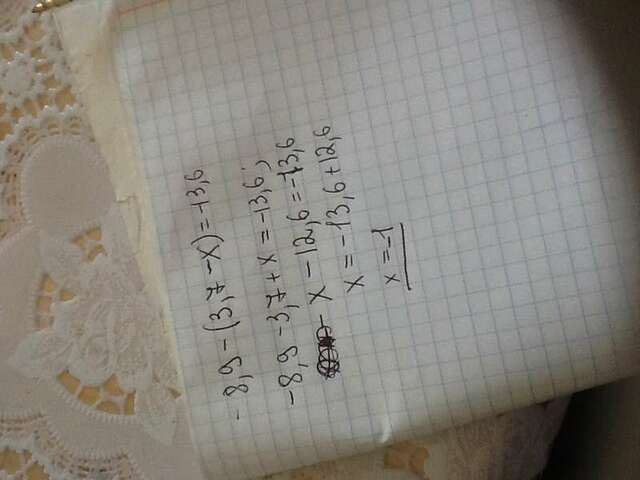 -8,9-(3,7-x)=-13,6
-8,9-3,7+x=-13,6;
x-12,6=-13,6
x=-13,6+12,6
x=-1